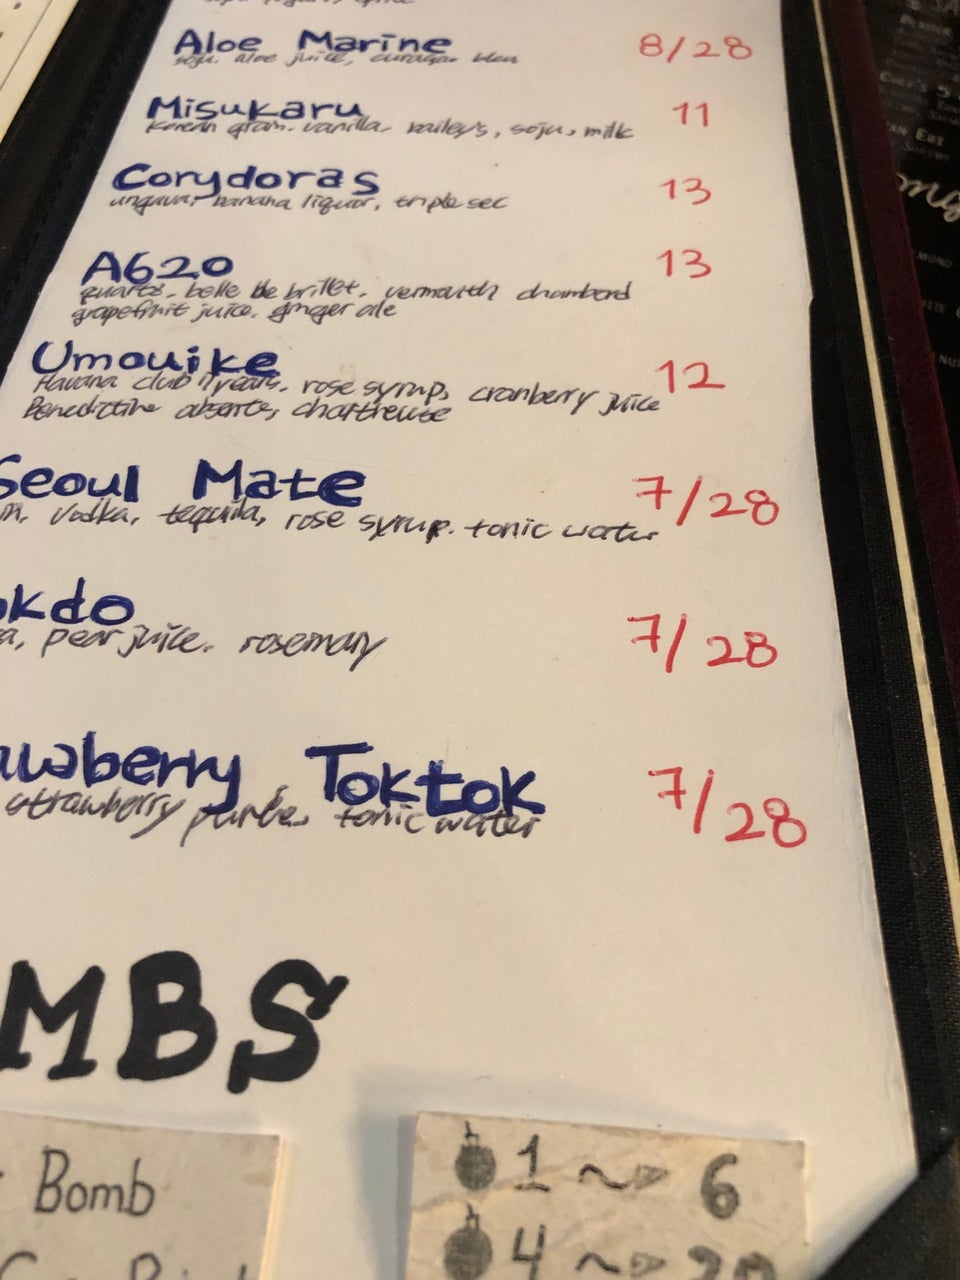 Aloe Marine 8/28
soju. aloe juice, curacao bleu
Misukaru 11
Korean grain. vanilla. bailey's, soju, milk
Corydoras 13
ungava, banana liquor, triple sec
A620 13
quartz. belle de brillet. vermouth chambord
grapefruit juice. ginger ale
Umouike 12
Havana club 7years. rose syrup, cranberry juice
Benedictine absente, chartreuse
Seoul Mate 7/28
vodka, tequila, rose syrup. tonic water
kdo 7/28
pear juice. rosemary
wberry Toktok 7/28
strawberry tonic water
MBS
Bomb
1 ~> 6
4 ~>